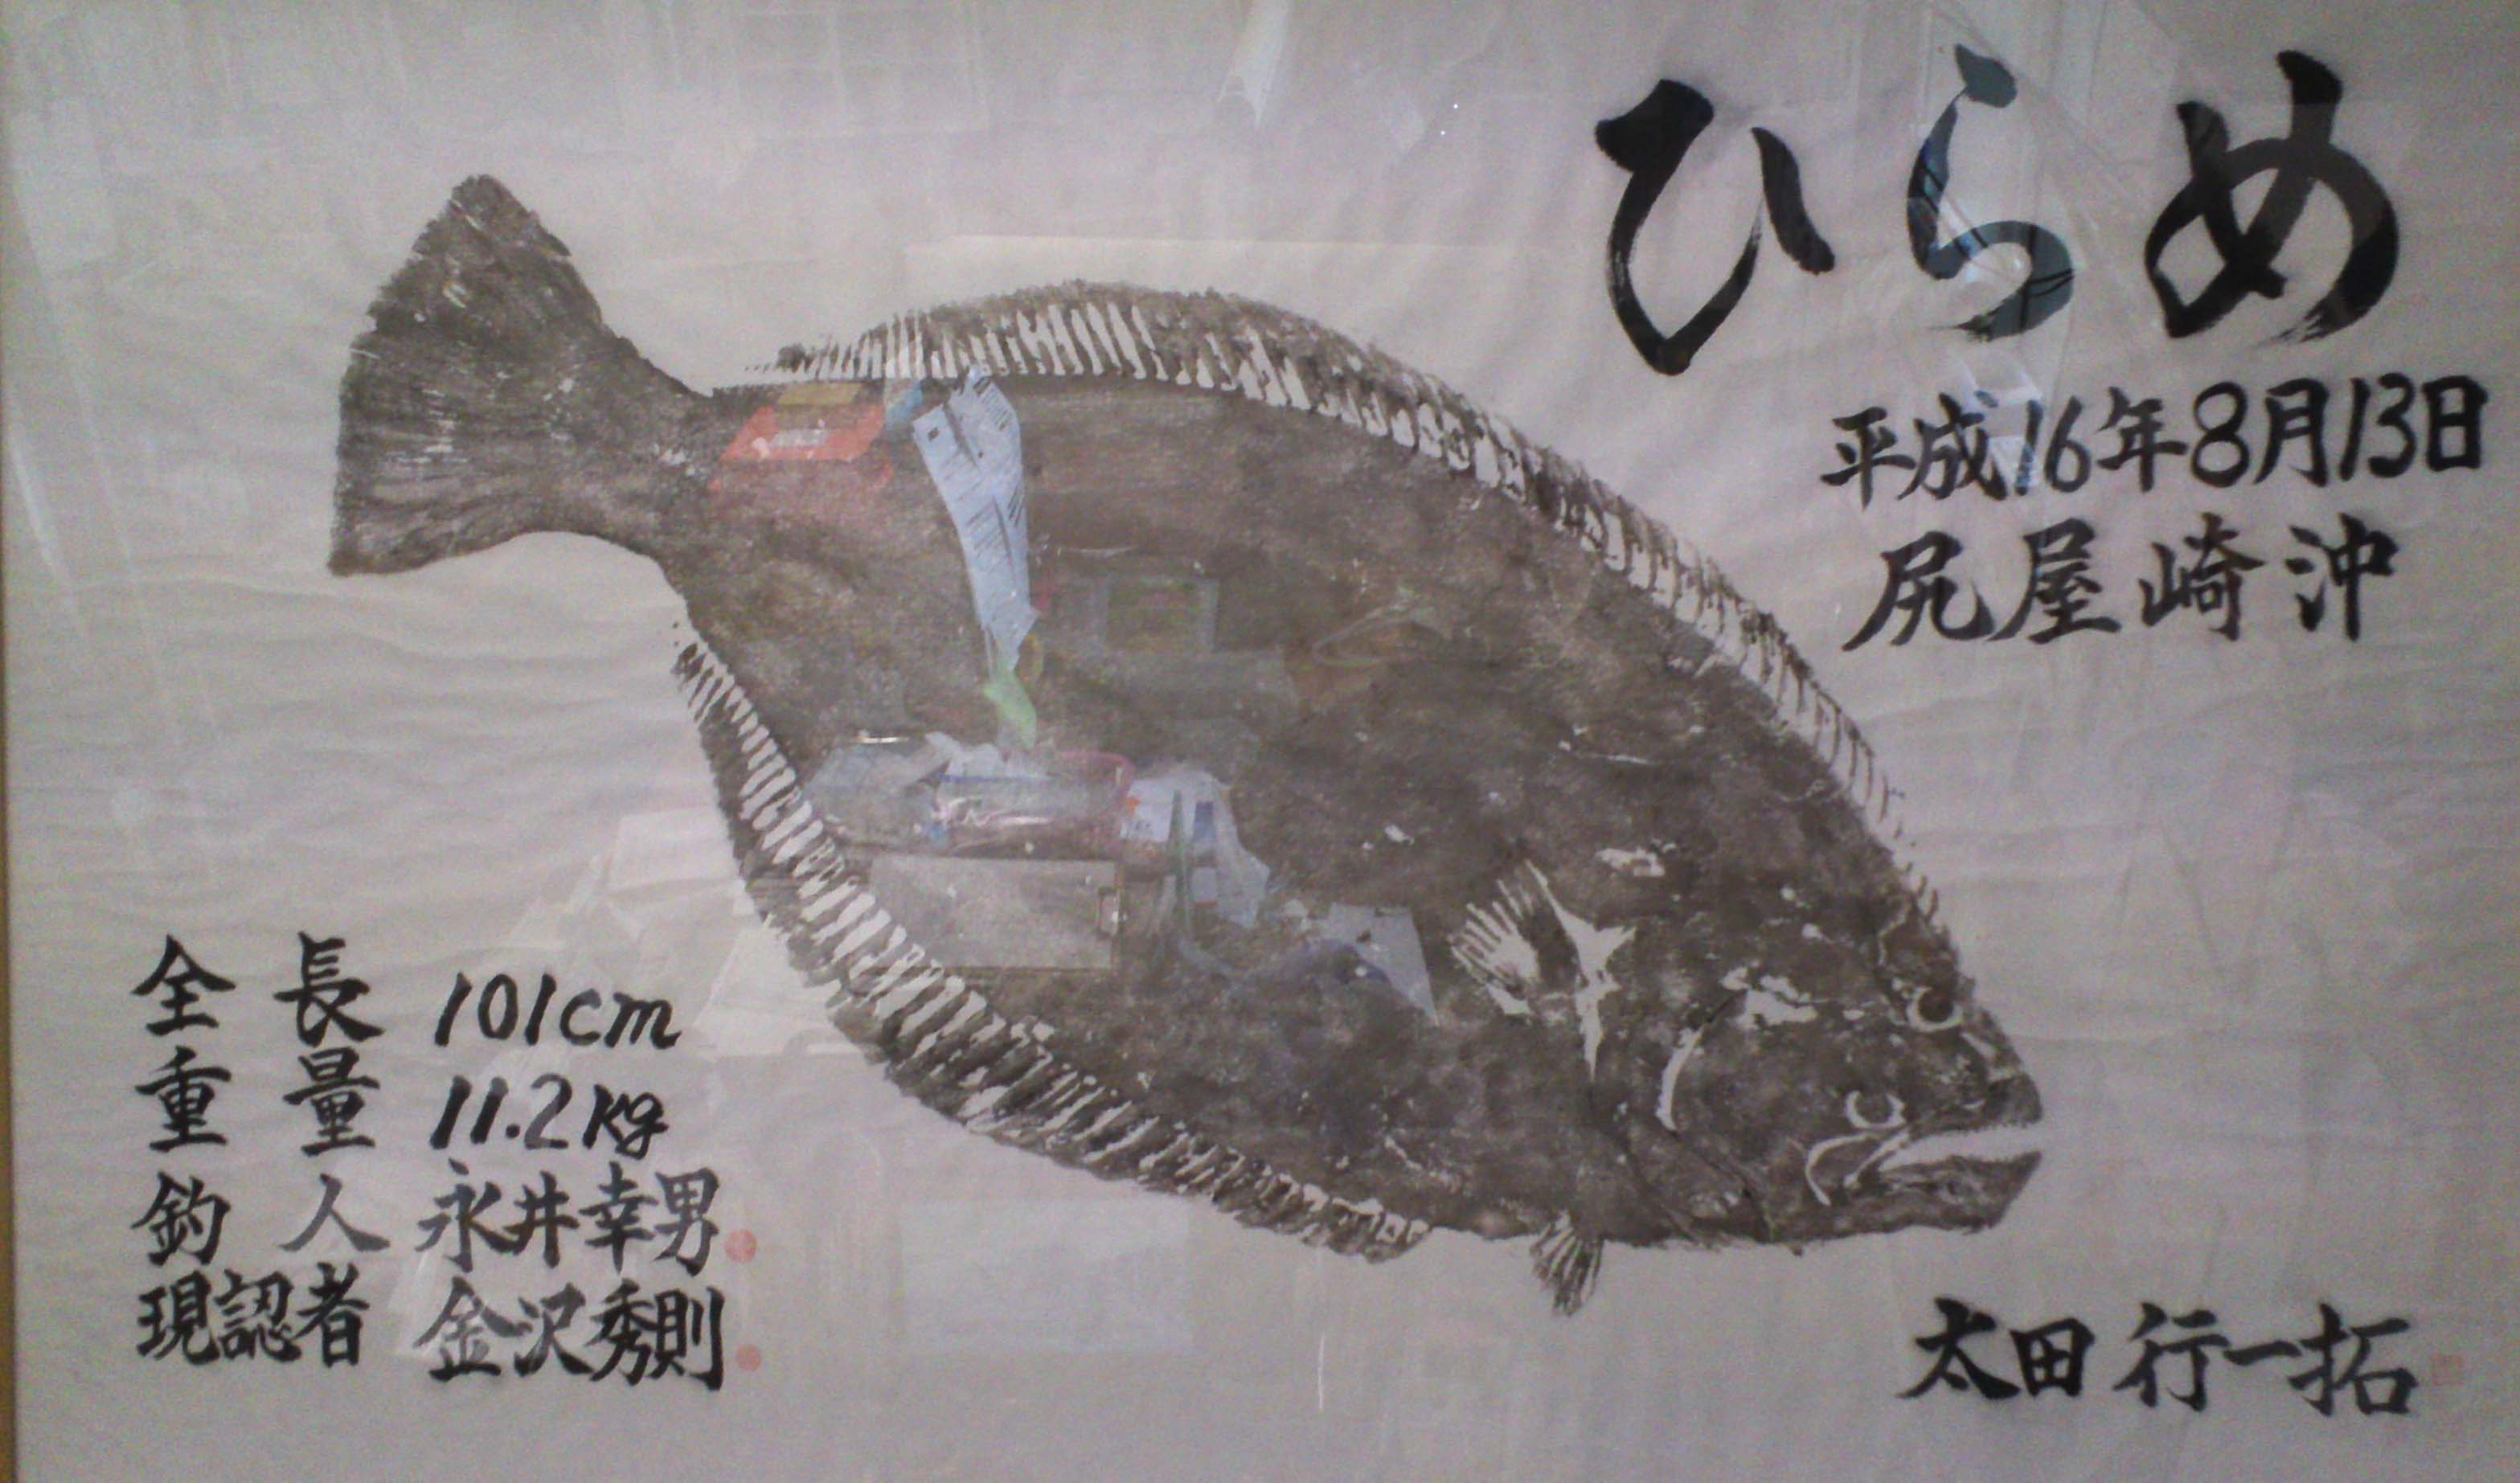 ひらめ
平成16年8月13日
尻屋崎沖
全長 101cm
重量 11.2kg
釣人 永井幸男
現認者 金沢秀則
太田行一拓